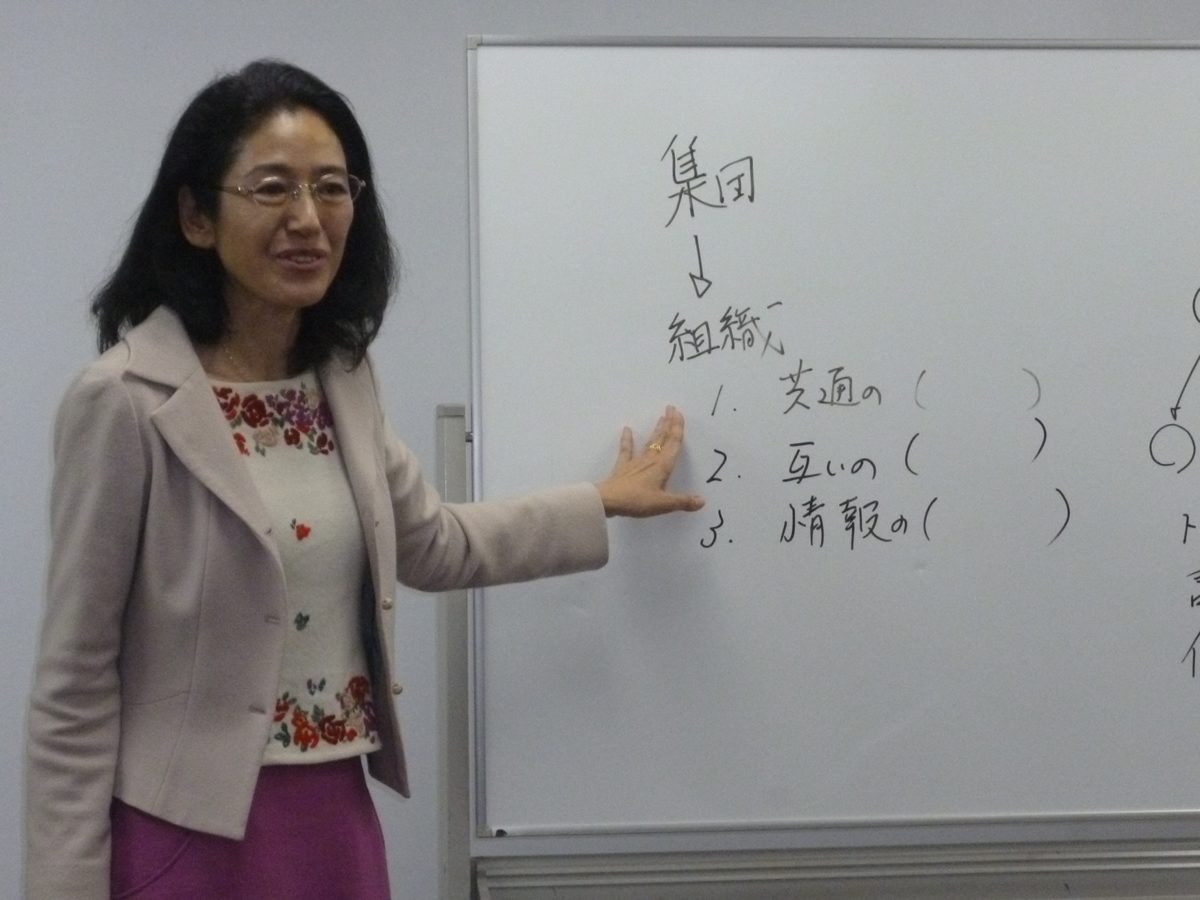 集団
↓
組織
1. 共通の (　　　)
2. 互いの (　　　)
3. 情報の (　　　)
ト